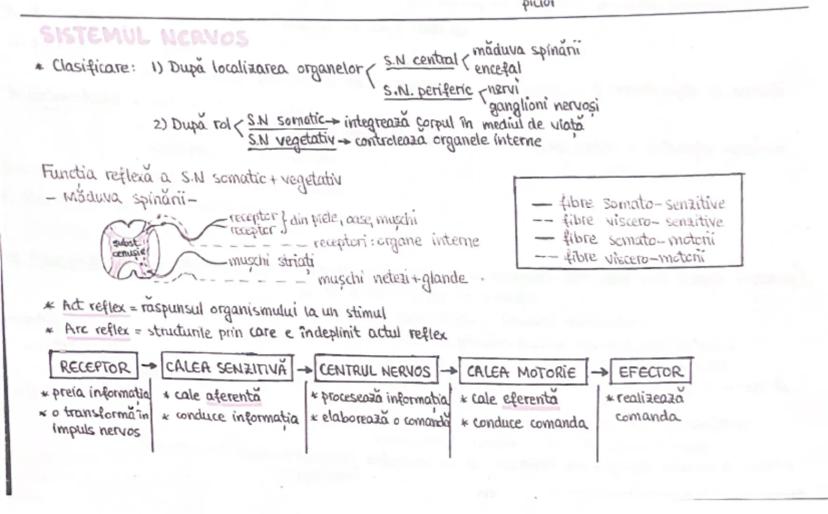 picior
SISTEMUL NERVOS
* Clasificare: 1) După localizarea organelor < S.N central < măduva spinării
encefal
S.N. periferic < nervi
ganglioni nervoși
2) După rol < S.N somatic → integrează corpul în mediul de viață
S.N vegetativ → controlează organele interne
Funcția reflexă a S.N somatic + vegetativ
- Măduva spinării -
receptor } din piele, oase, mușchi
receptor
receptori: organe interne
subst cenușie
mușchi striați
mușchi netezi + glande
— fibre somato-senzitive
-- fibre viscero-senzitive
— fibre somato-motorii
-- fibre viscero-motorii
* Act reflex = răspunsul organismului la un stimul
* Arc reflex = structurile prin care e îndeplinit actul reflex
RECEPTOR → CALEA SENZITIVĂ → CENTRUL NERVOS → CALEA MOTORIE → EFECTOR
* preia informația
* o transformă în
impuls nervos
* cale aferentă
* conduce informația
* procesează informația
* elaborează o comandă
* cale eferentă
* conduce comanda
* realizează
comanda